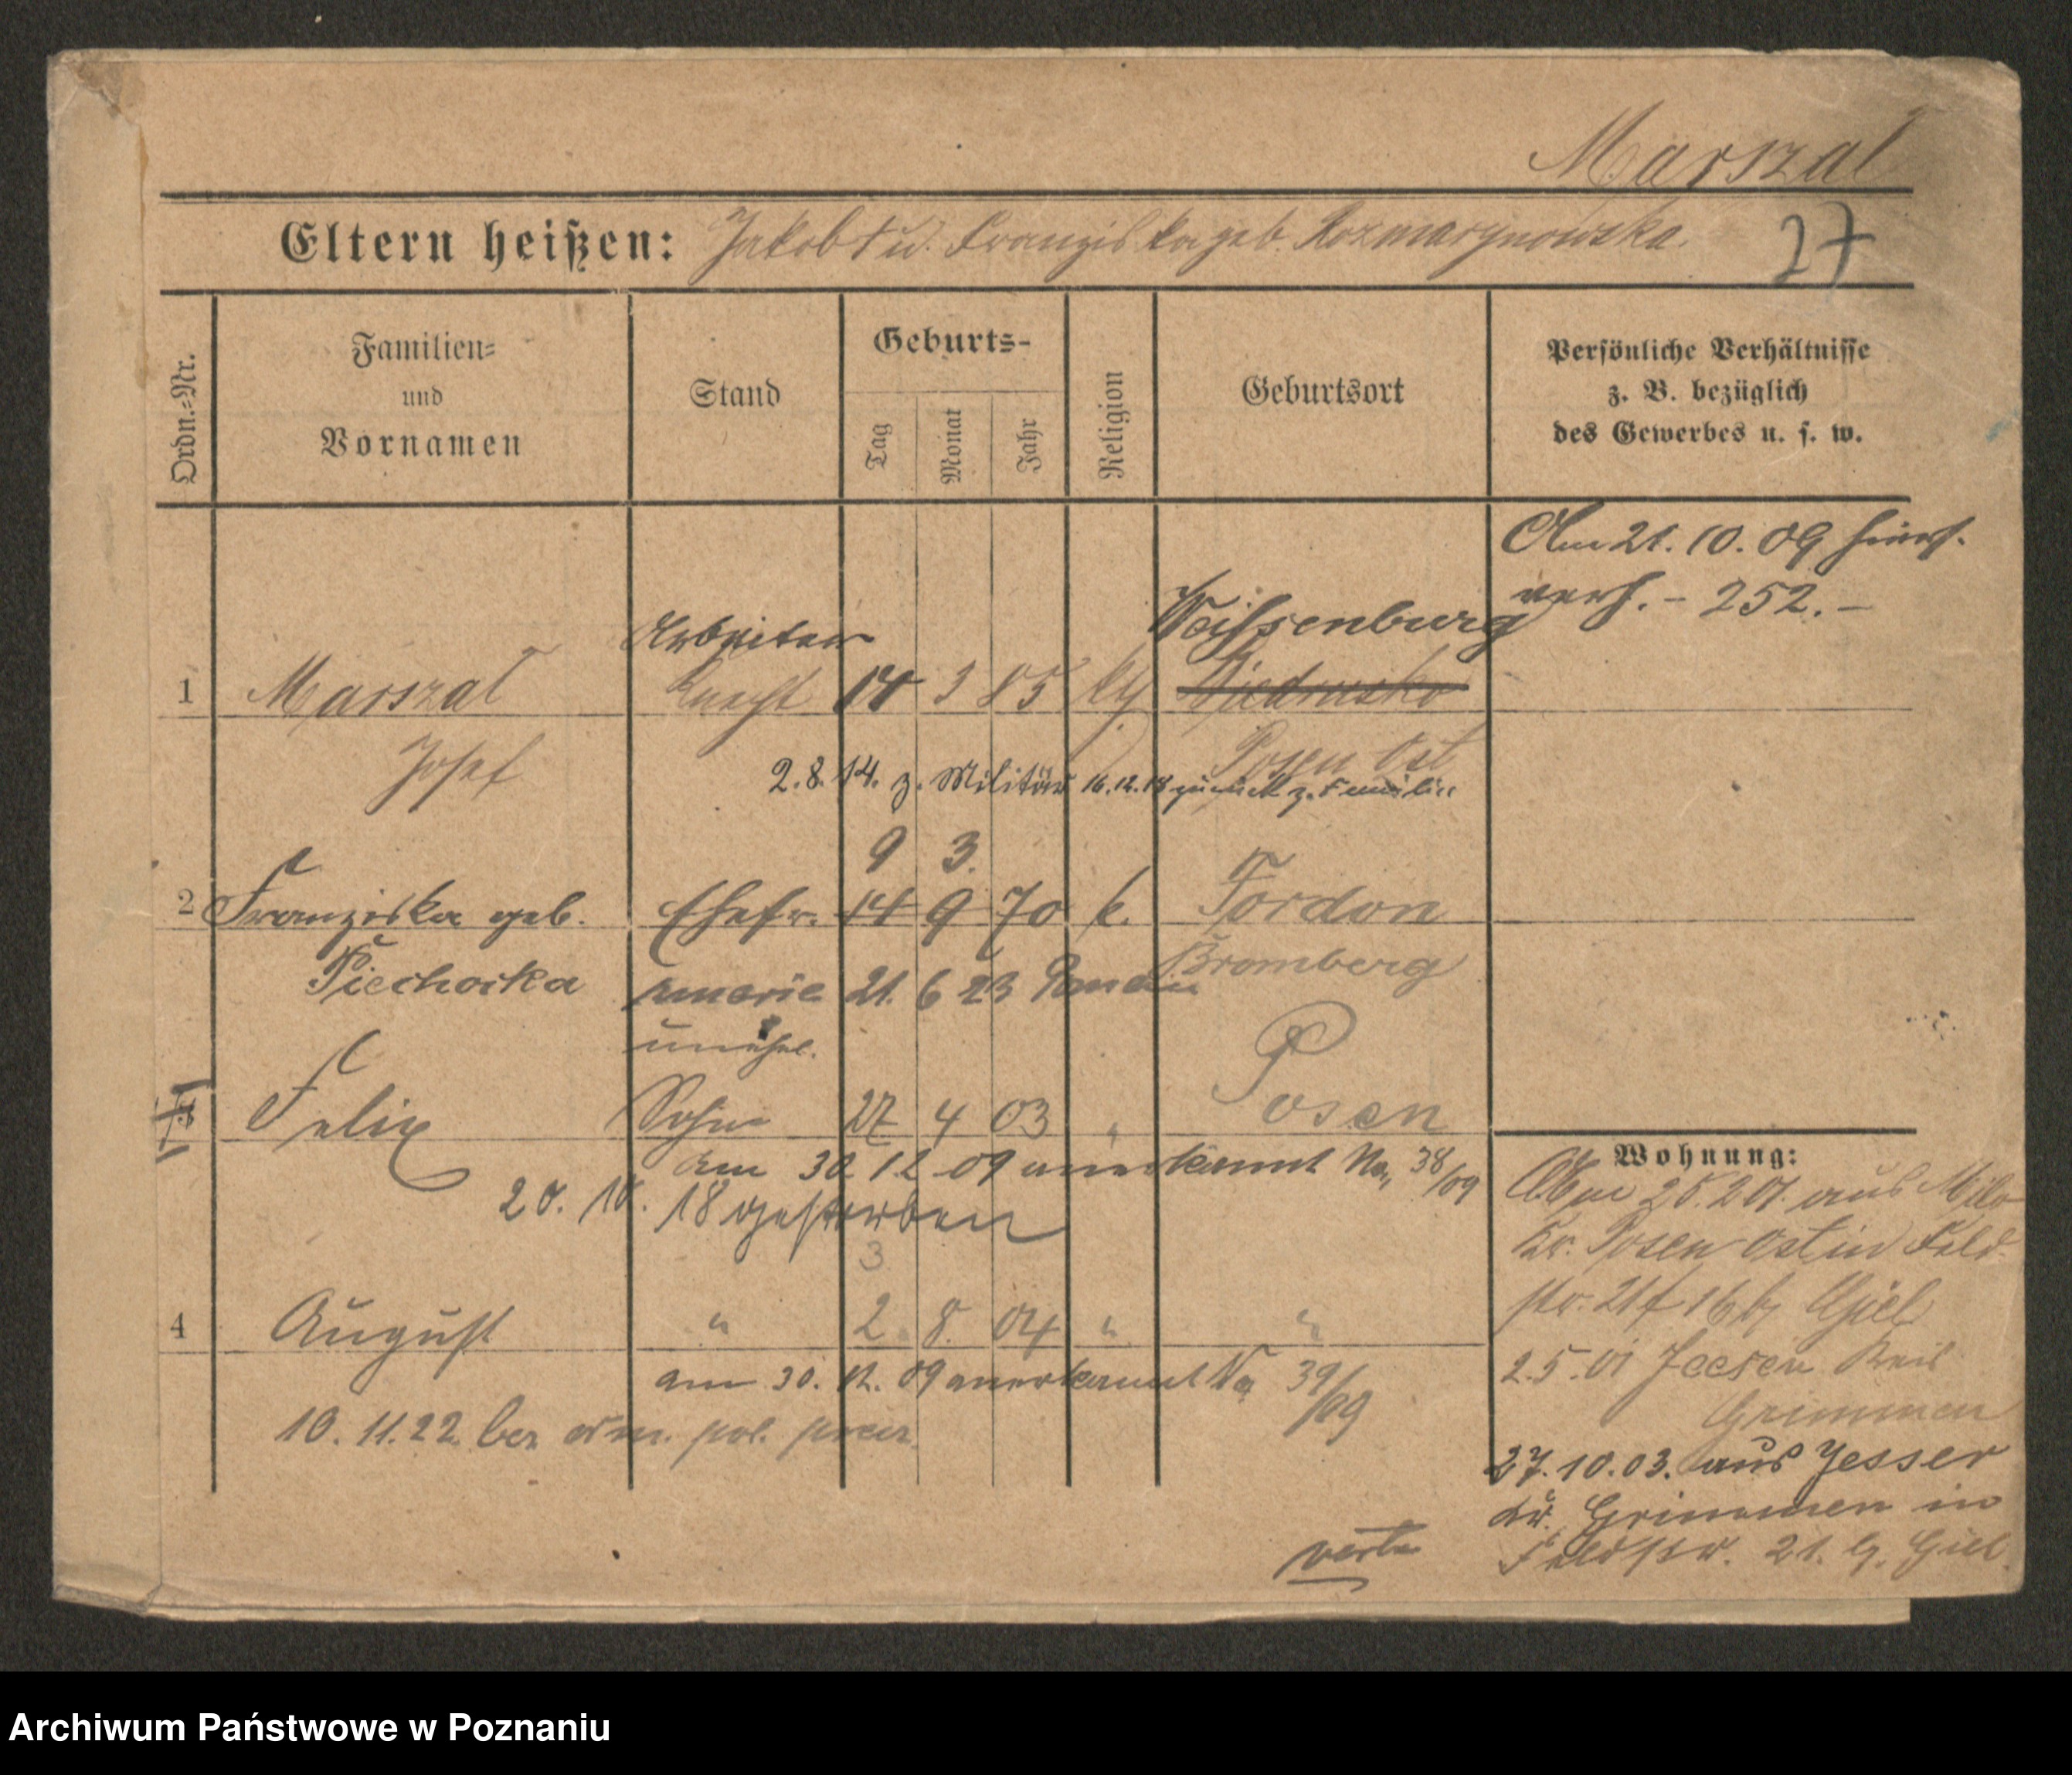 Marszal
Eltern heißen: Jakob † u. Franziska geb. Rozmarynowska.
27
Ordn.-Nr.
Familien-
und
Vornamen
Stand
Geburts-
Tag
Monat
Jahr
Religion
Geburtsort
Persönliche Verhältnisse
z. B. bezüglich
des Gewerbes u. s. w.
Am 21. 10. 09
- 252. -
Arbeiter
Weissenburg
1 Marszal Knecht 14 3 85 kth Biedrusko
Josef
Posen Ost
2. 8. 14. z. Militär 16. 12. 18 zurück z. Familie
9 3.
2 Franziska geb. Ehefr. 14 9 70 k. Fordon
Piechocka
Bromberg
21. 6 23
unehel.
Felix Sohn 27 4 03 " Posen
am 30 12 09 anerkannt No. 38/09
20. 10. 18 gestorben
3
4 August " 2. 8. 04 " "
am 30. 12. 09 anerkannt No 39/09
10. 11. 22
Wohnung:
aus
Kr. Posen Ost in Feld
str. 21
2. 5. 01 Jeeser Kreis
Grimmen
27. 10. 03. aus Jesser
Kr. Grimmen in
Feldstr. 21.
verte
Archiwum Państwowe w Poznaniu